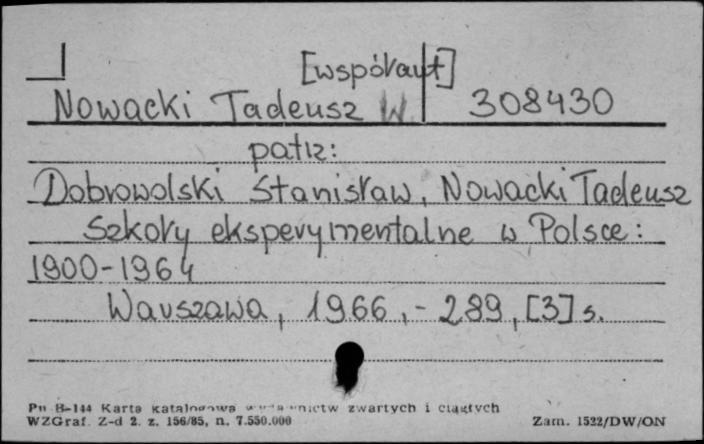 [współaut]
Nowacki Tadeusz W. 308430
patrz:
Dobrowolski Stanisław, Nowacki Tadeusz
Szkoły eksperymentalne w Polsce:
1900-1964
Warszawa, 1966, - 289, [3] s.
Pu B-144 Karta katalogowa wydawnictw zwartych i ciągłych
WZGraf. Z-d 2. z. 156/85, n. 7.550.000 Zam. 1522/DW/ON